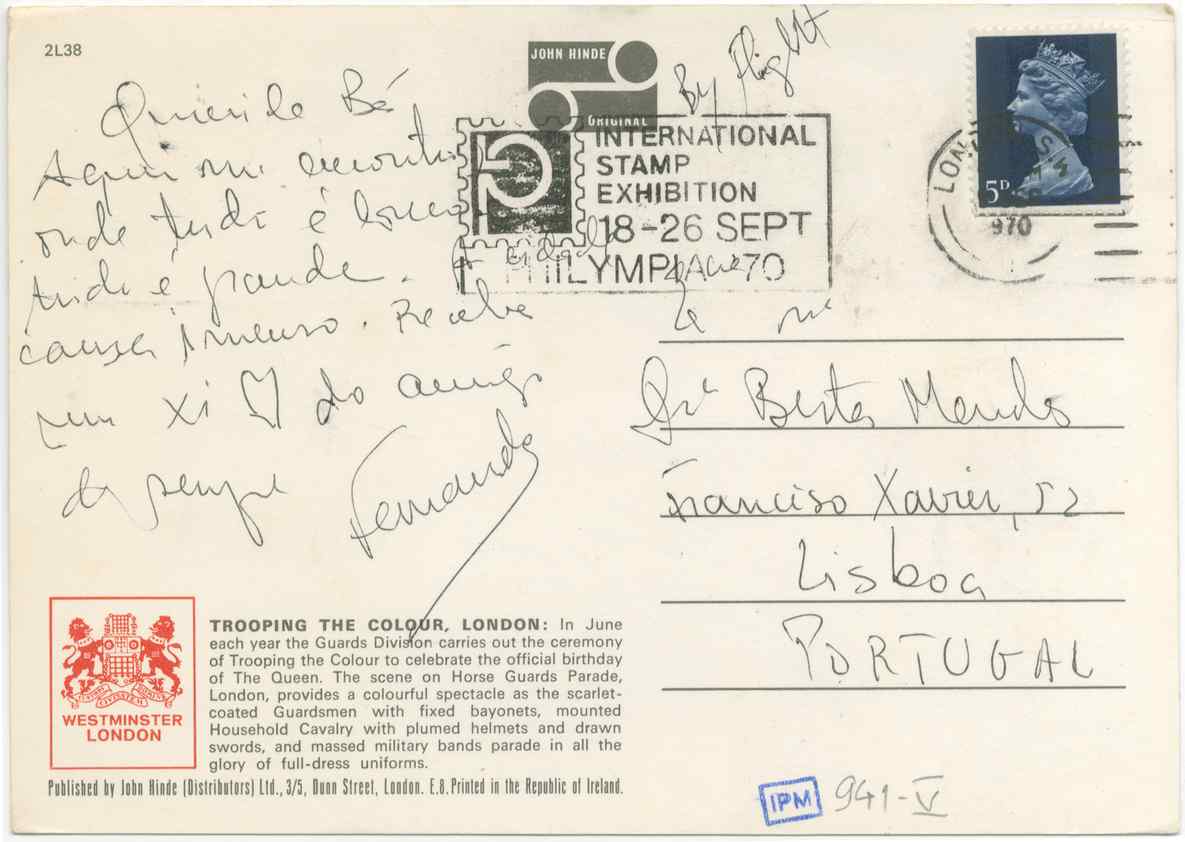 2L38
JOHN HINDE
ORIGINAL
By flight
INTERNATIONAL
STAMP
EXHIBITION
18-26 SEPT
PHILYMPIA 70
LON
S.W
970
5D
Querida Bé
Aqui me encontro
onde tudo é
tudo é grande. A cidade
causa imenso. Recebe
um xi do amigo
de sempre
Fernando
Srª Berta Mendes
Francisco Xavier, 52
Lisboa
PORTUGAL
WESTMINSTER
LONDON
TROOPING THE COLOUR, LONDON: In June
each year the Guards Division carries out the ceremony
of Trooping the Colour to celebrate the official birthday
of The Queen. The scene on Horse Guards Parade,
London, provides a colourful spectacle as the scarlet-
coated Guardsmen with fixed bayonets, mounted
Household Cavalry with plumed helmets and drawn
swords, and massed military bands parade in all the
glory of full-dress uniforms.
Published by John Hinde (Distributors) Ltd., 3/5, Dunn Street, London. E.8. Printed in the Republic of Ireland.
IPM 941-V